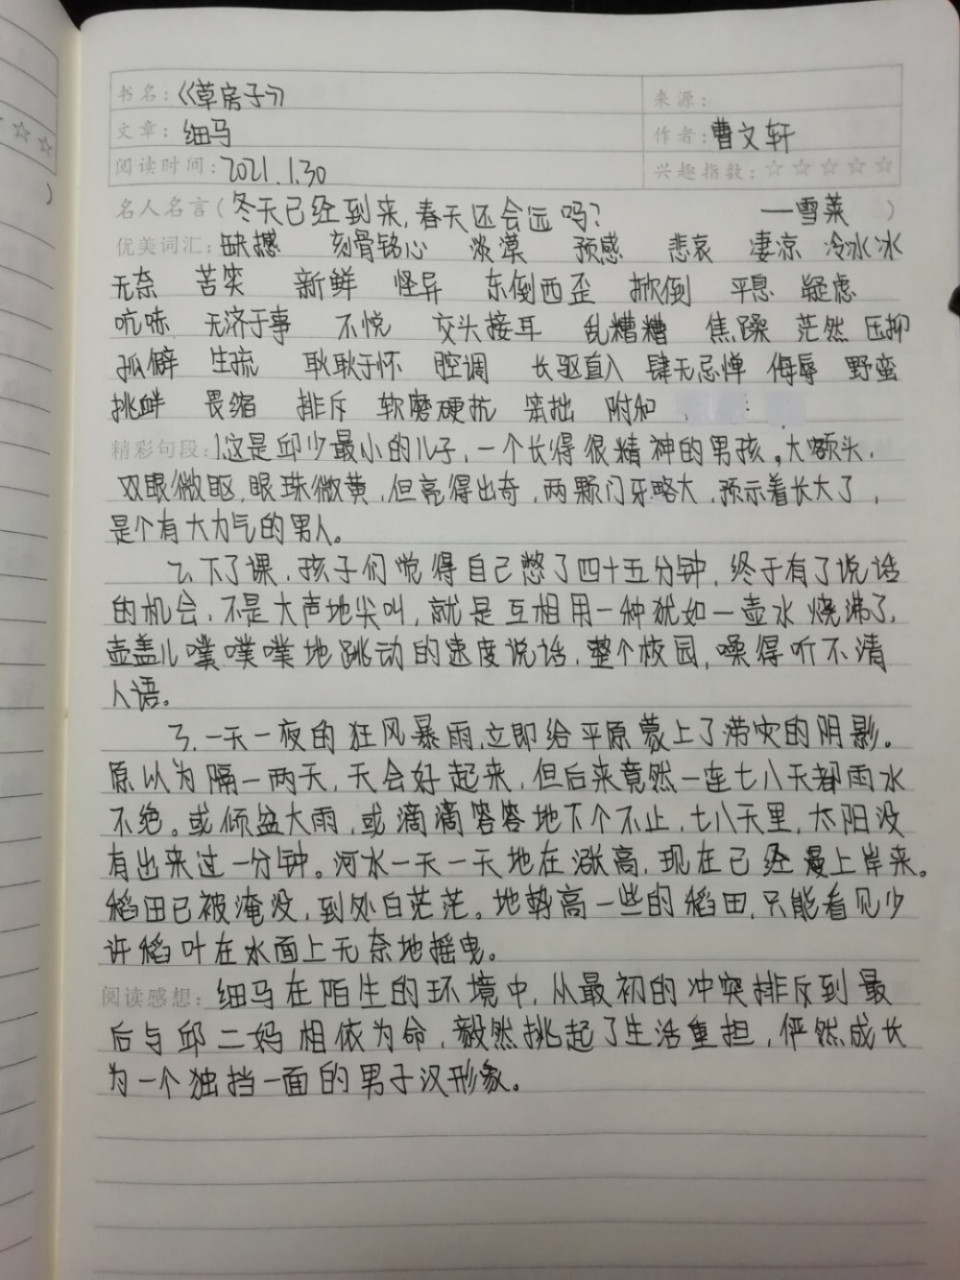 书名：《草房子》 来源：
文章：细马 作者：曹文轩
阅读时间：2021.1.30 兴趣指数：☆☆☆☆☆
名人名言（冬天已经到来，春天还会远吗？ —雪莱 ）
优美词汇：缺憾 刻骨铭心 淡漠 预感 悲哀 凄凉 冷冰冰
无奈 苦笑 新鲜 怪异 东倒西歪 掀倒 平息 疑虑
吭哧 无济于事 不悦 交头接耳 乱糟糟 焦躁 茫然 压抑
孤僻 生疏 耿耿于怀 腔调 长驱直入 肆无忌惮 侮辱 野蛮
挑衅 畏缩 排斥 软磨硬抗 笨拙 附和
精彩句段：1.这是邱少最小的儿子，一个长得很精神的男孩。大额头，
双眼微眍，眼珠微黄，但亮得出奇，两颗门牙略大，预示着长大了，
是个有大力气的男人。
2.下了课，孩子们觉得自己憋了四十五分钟，终于有了说话
的机会，不是大声地尖叫，就是互相用一种犹如一壶水烧沸了，
壶盖儿噗噗噗地跳动的速度说话，整个校园，嗓得听不清
人语。
3.一天一夜的狂风暴雨，立即给平原蒙上了涝灾的阴影。
原以为隔一两天，天会好起来，但后来竟然一连七八天都雨水
不绝。或倾盆大雨，或滴滴答答地下个不止，七八天里，太阳没
有出来过一分钟。河水一天一天地在涨高，现在已经漫上岸来。
稻田已被淹没，到处白茫茫。地势高一些的稻田，只能看见少
许稻叶在水面上无奈地摇曳。
阅读感想：细马在陌生的环境中，从最初的冲突排斥到最
后与邱二妈相依为命，毅然挑起了生活重担，俨然成长
为一个独挡一面的男子汉形象。